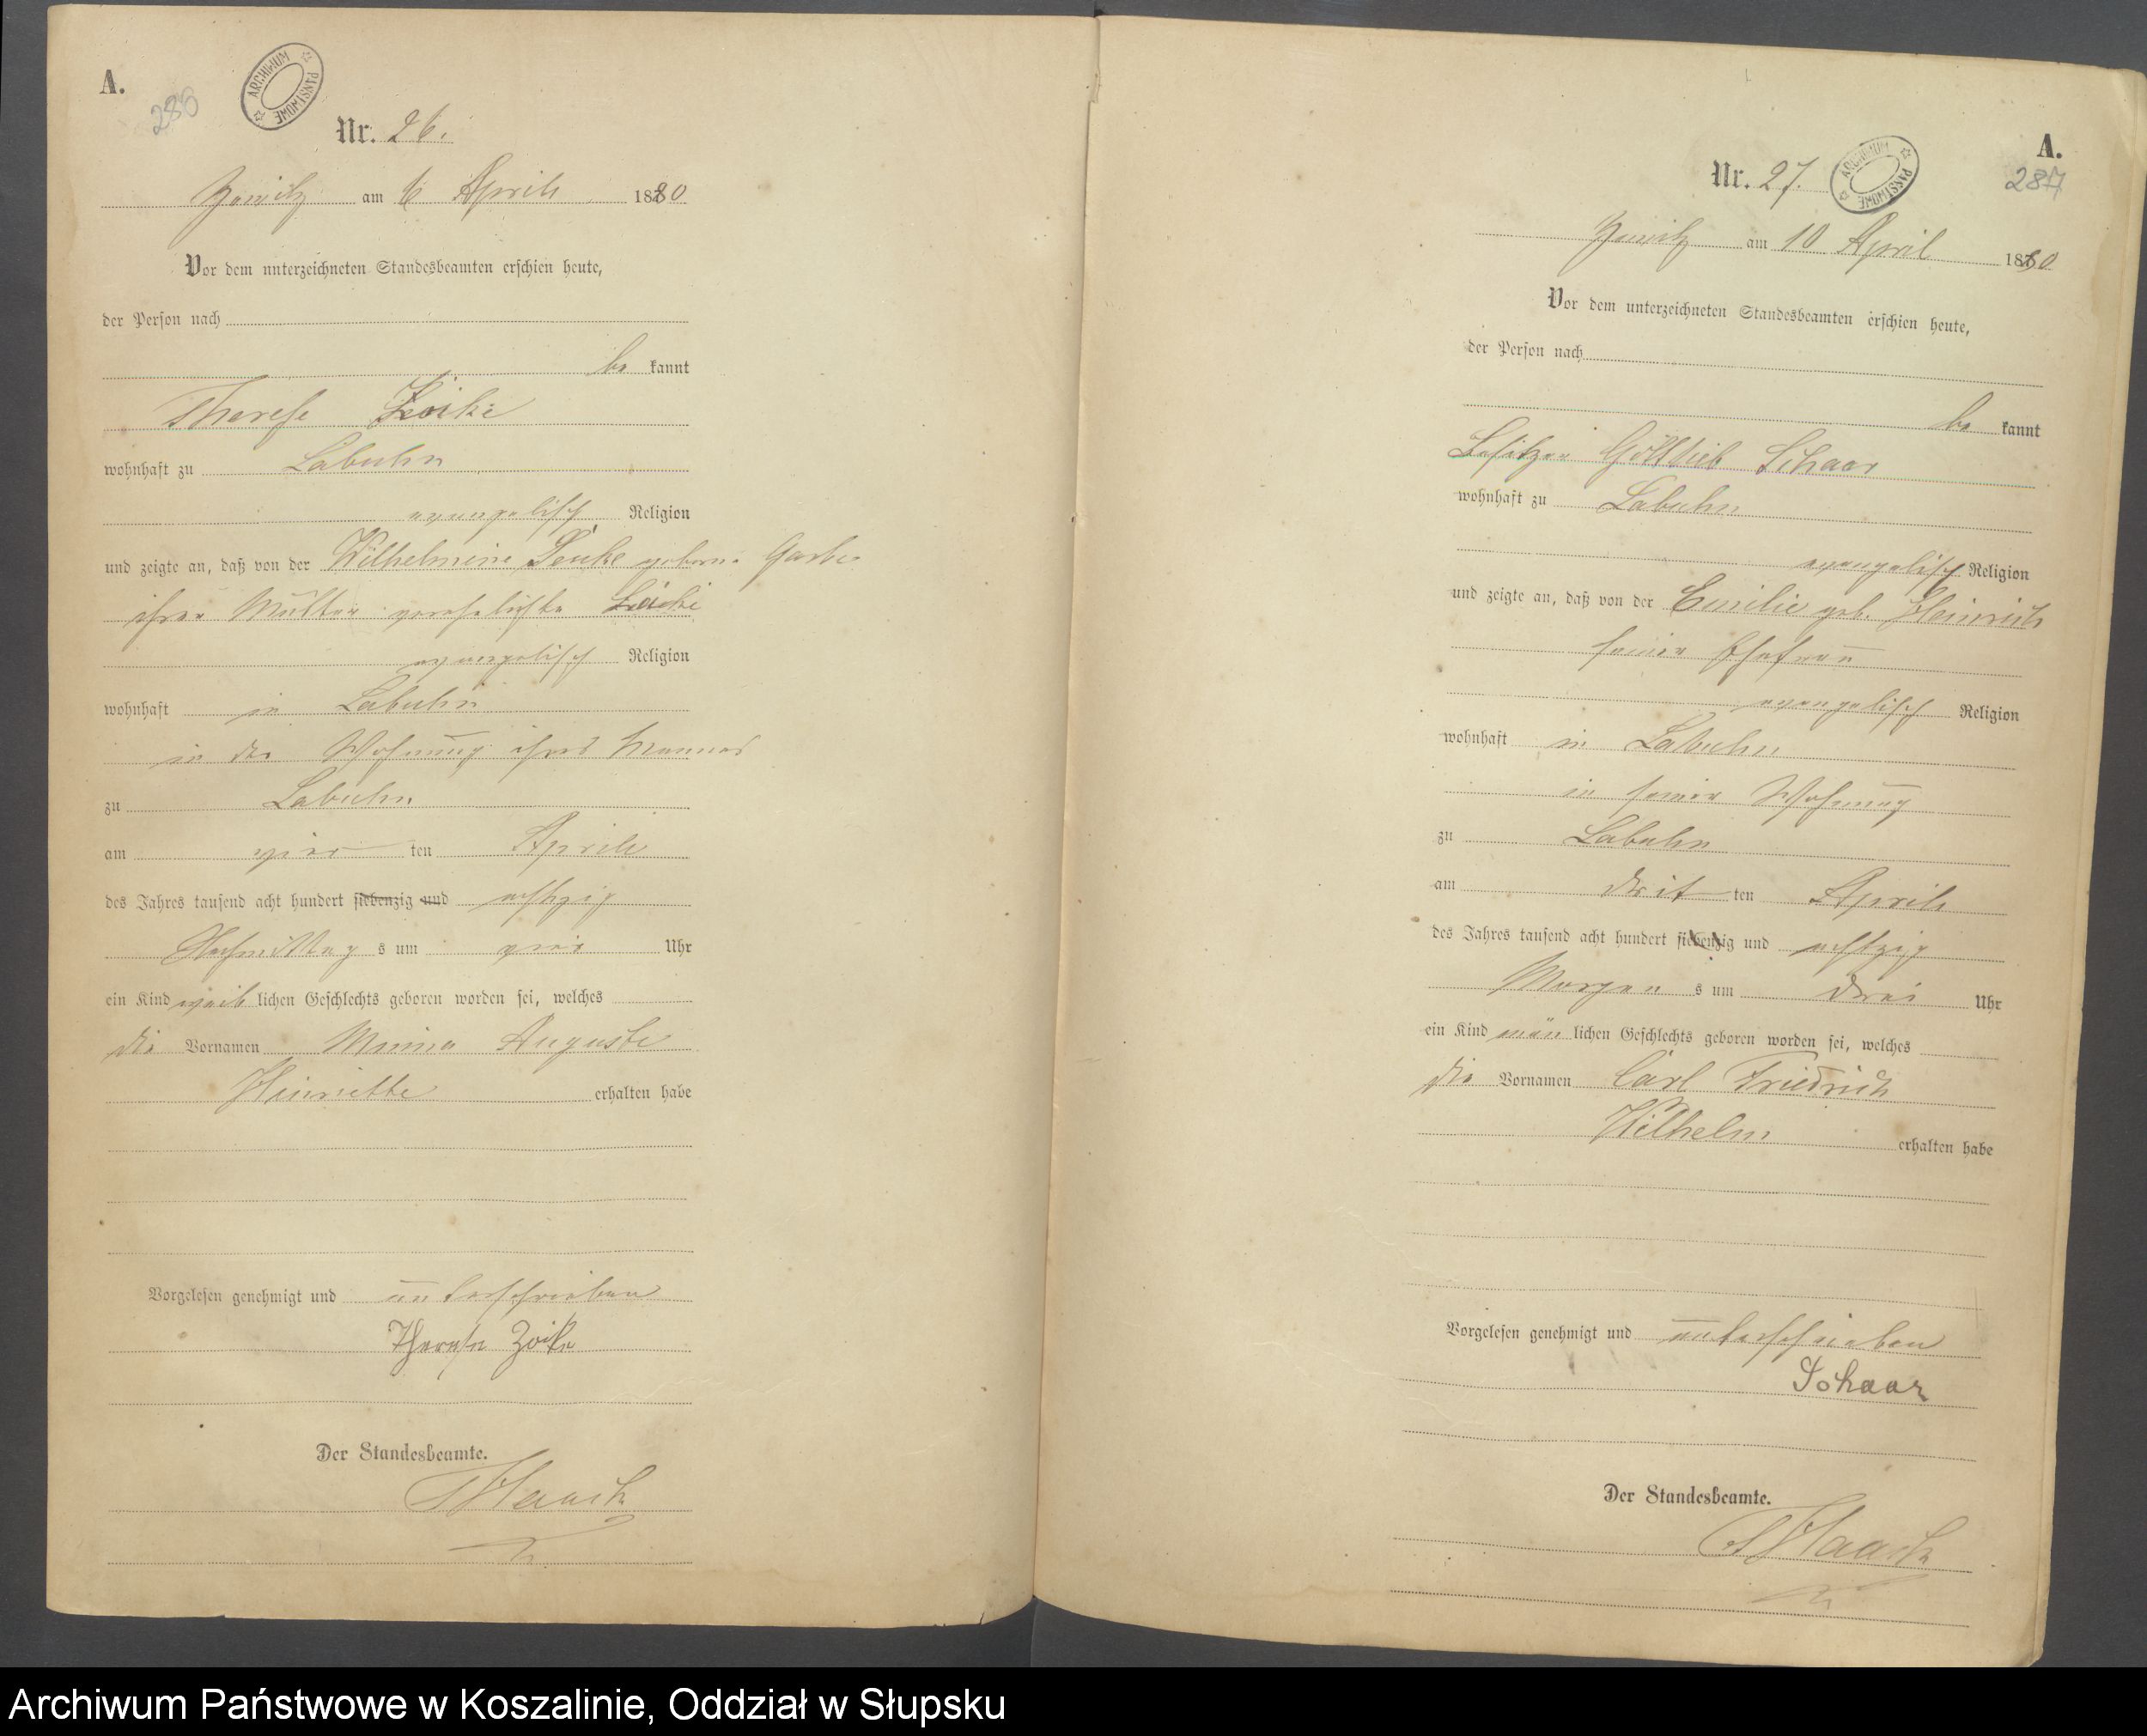 A.
286
ARCHIWUM PAŃSTWOWE
Nr. 26.
am 6 April 1880
Vor dem unterzeichneten Standesbeamten erschien heute,
der Person nach
be kannt
Therese
wohnhaft zu Labuhn
evangelisch Religion
und zeigte an, daß von der Wilhelmine geborne Garbe
ihrer Mutter verehelichte
evangelisch Religion
wohnhaft in Labuhn
in der Wohnung ihres Mannes
zu Labuhn
am vier ten April
des Jahres tausend acht hundert siebenzig und achtzig
Nachmittag s um vier Uhr
ein Kind weib lichen Geschlechts geboren worden sei, welches
die Vornamen Minna Auguste
Henriette erhalten habe
Vorgelesen genehmigt und unterschrieben
Therese Zoike
Der Standesbeamte.
Haack
A.
287
Nr. 27.
ARCHIWUM PAŃSTWOWE
am 10 April 1880
Vor dem unterzeichneten Standesbeamten erschien heute,
der Person nach
be kannt
Besitzer Gottlieb Schaar
wohnhaft zu Labuhn
evangelisch Religion
und zeigte an, daß von der Emilie geb. Heinrich
seiner Ehefrau
evangelisch Religion
wohnhaft in Labuhn
in seiner Wohnung
zu Labuhn
am drit ten April
des Jahres tausend acht hundert siebenzig und achtzig
Morgen s um drei Uhr
ein Kind män lichen Geschlechts geboren worden sei, welches
die Vornamen Carl Friedrich
Wilhelm erhalten habe
Vorgelesen genehmigt und unterschrieben
Schaar
Der Standesbeamte.
Haack
Archiwum Państwowe w Koszalinie, Oddział w Słupsku